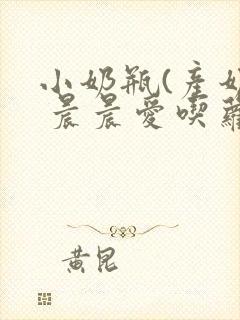 小奶瓶(產奶
晨晨愛喫蘿
黃昆